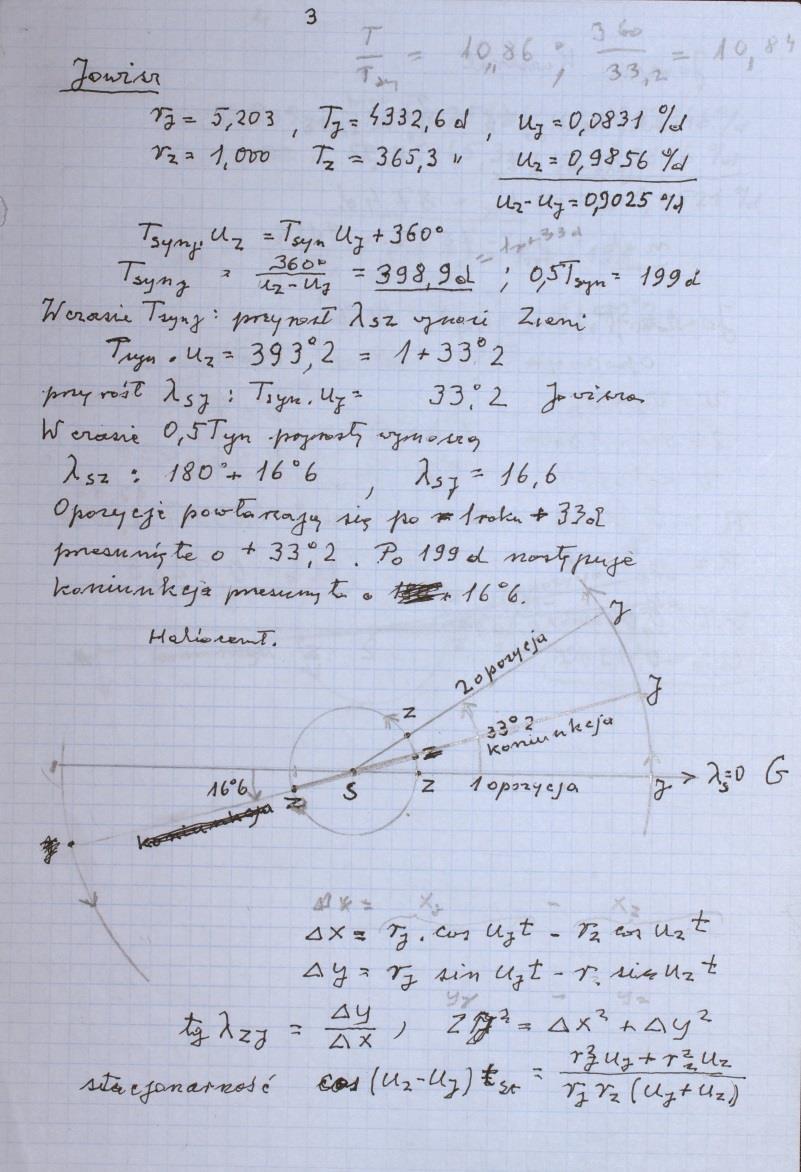 3
T/T = 10,86 ; 360/33,2 = 10,84
Jowisz
rⱼ = 5,203 , Tⱼ = 4332,6 d , uⱼ = 0,0831 °/d
r_z = 1,000 T_z = 365,3 " u_z = 0,9856 °/d
u_z - uⱼ = 0,9025 °/d
T_synj. u_z = T_syn uⱼ + 360°
T_synj = 360°/(u_z - uⱼ) = 398,9 d ; 0,5 T_syn = 199 d
W czasie T_synj : przyrost λ_sz wynosi Ziemi
T_syn . u_z = 393°,2 = 1 + 33°,2
przyrost λ_sj : T_syn . uⱼ = 33°,2 Jowisza
W czasie 0,5 Tyn przyrosty wynoszą
λ_sz : 180° + 16°6 , λ_sj = 16,6
Opozycje powtarzają się po 1 roku + 33 d
przesunięte o + 33°,2. Po 199 d następuje
koniunkcja przesunięta o + 16°6.
Heliocent.
J
2 opozycja
J
Z
33°2
koniunkcja
Z
16°6
Z
S
Z
1 opozycja
J
> λ_s=0 G
koniunkcja
J
Δx = x_j - x_z
Δx = rⱼ . cos uⱼt - r_z cos u_z t
Δy = rⱼ sin uⱼt - r. sin u_z t
y_j - y_z
tg λ_zj = Δy/Δx , ZJ² = Δx² + Δy²
stacjonarność cos (u_z - uⱼ) t_st = (rⱼ² uⱼ + r_z² u_z)/(rⱼ r_z (uⱼ + u_z))